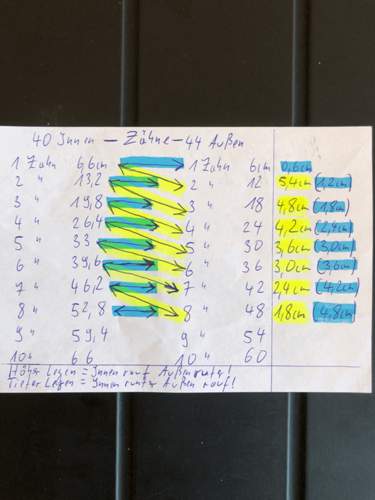 40 Innen – Zähne – 44 Außen
1 Zahn 6,6cm 1 Zahn 6cm 0,6cm
2 " 13,2 2 " 12 5,4cm (1,2cm)
3 " 19,8 3 " 18 4,8cm (1,8cm)
4 " 26,4 4 " 24 4,2cm (2,4cm)
5 " 33 5 " 30 3,6cm (3,0cm)
6 " 39,6 6 " 36 3,0cm (3,6cm)
7 " 46,2 7 " 42 2,4cm (4,2cm)
8 " 52,8 8 " 48 1,8cm (4,8cm)
9 " 59,4 9 " 54
10 " 66 10 " 60
Höher Legen = Innen rauf Außen runter!
Tiefer Legen = Innen runter Außen rauf!